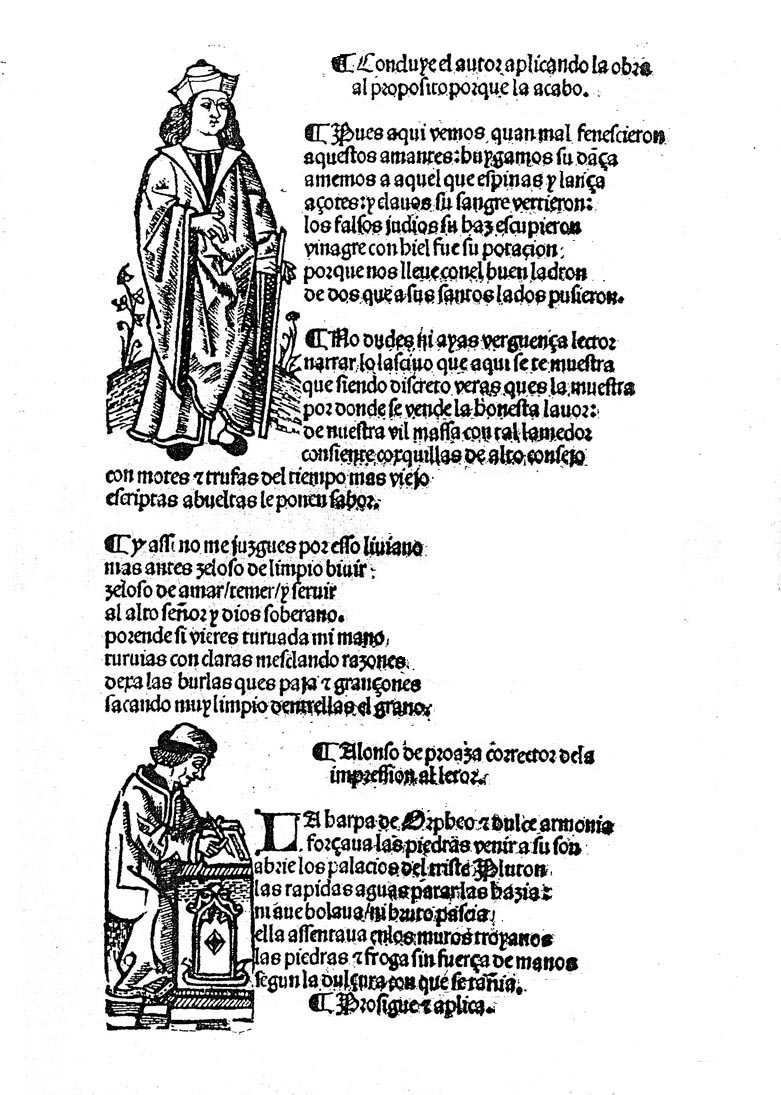 ¶ Concluye el autor aplicando la obra
al proposito porque la acabo.
¶ Pues aqui vemos quan mal fenescieron
aquestos amantes: huygamos su dãça
amemos a aquel que espinas y lança
açotes: y clauos su sangre vertieron:
los falsos judios su haz escupieron
vinagre con hiel fue su potacion:
porque nos lleue conel buen ladron
de dos que a sus santos lados pusieron.
¶ No dudes ni ayas verguença lector
narrar lo lasciuo que aqui se te muestra
que siendo discreto veras ques la muestra
por donde se vende la honesta lauor:
de nuestra vil massa con tal lamedor
consiente coxquillas de alto consejo
con motes ⁊ trufas del tiempo mas viejo
escriptas abueltas le ponen sabor.
¶ Y assi no me juzgues por esso liuiano
mas antes zeloso de limpio biuir:
zeloso de amar/temer/y seruir
al alto señor y dios soberano.
porende si vieres turuada mi mano,
turuias con claras mesclando razones
dexa las burlas ques paja ⁊ grançones
sacando muy limpio dentrellas el grano:
¶ Alonso de proaza corrector dela
impression al letor.
LA harpa de Orpheo ⁊ dulce armonia
forçaua las piedras venir a su son
abrie los palacios del triste Pluton
las rapidas aguas parar las hazia:
ni aue bolaua/ni bruto pascia:
ella assentaua enlos muros troyanos
las piedras ⁊ froga sin fuerça de manos
segun la dulçura con que se tañia.
¶ Prosigue ⁊ aplica.